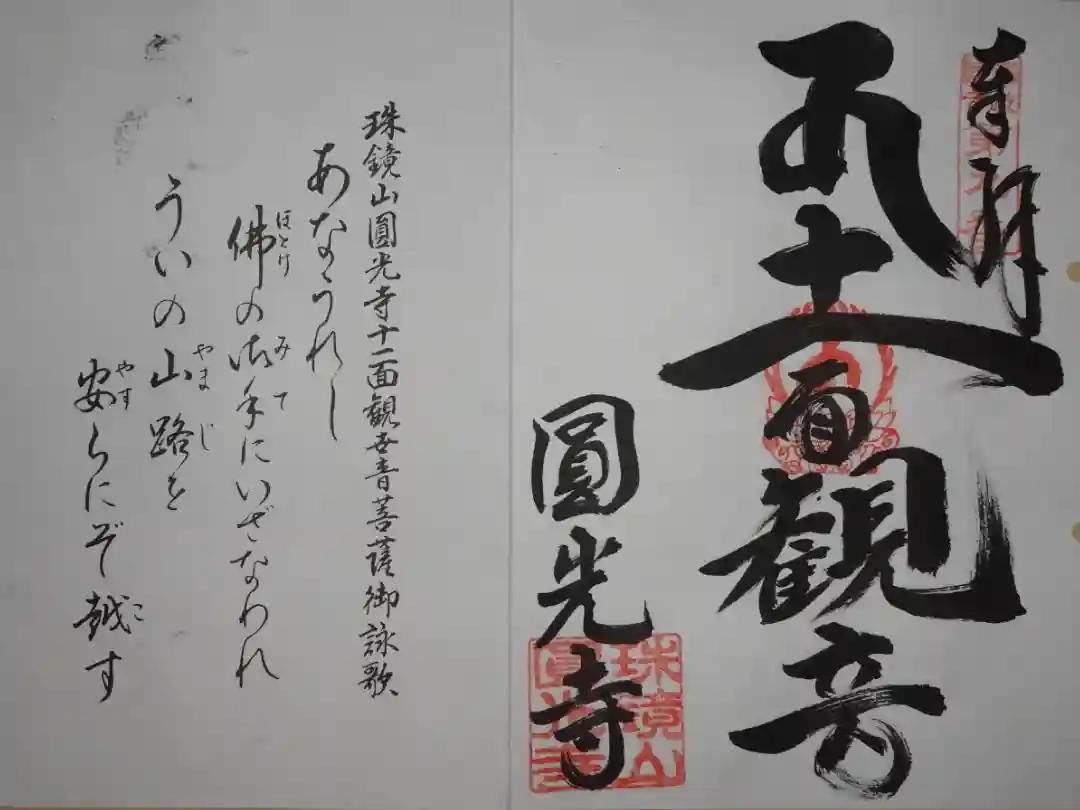 奉拝
十一面観音
圓光寺
珠鏡山
圓光寺
珠鏡山圓光寺十一面観世音菩薩御詠歌
あなうれし
佛の御手にいざなわれ
ほとけ みて
ういの山路を
やま じ
安らにぞ越す
やす こ